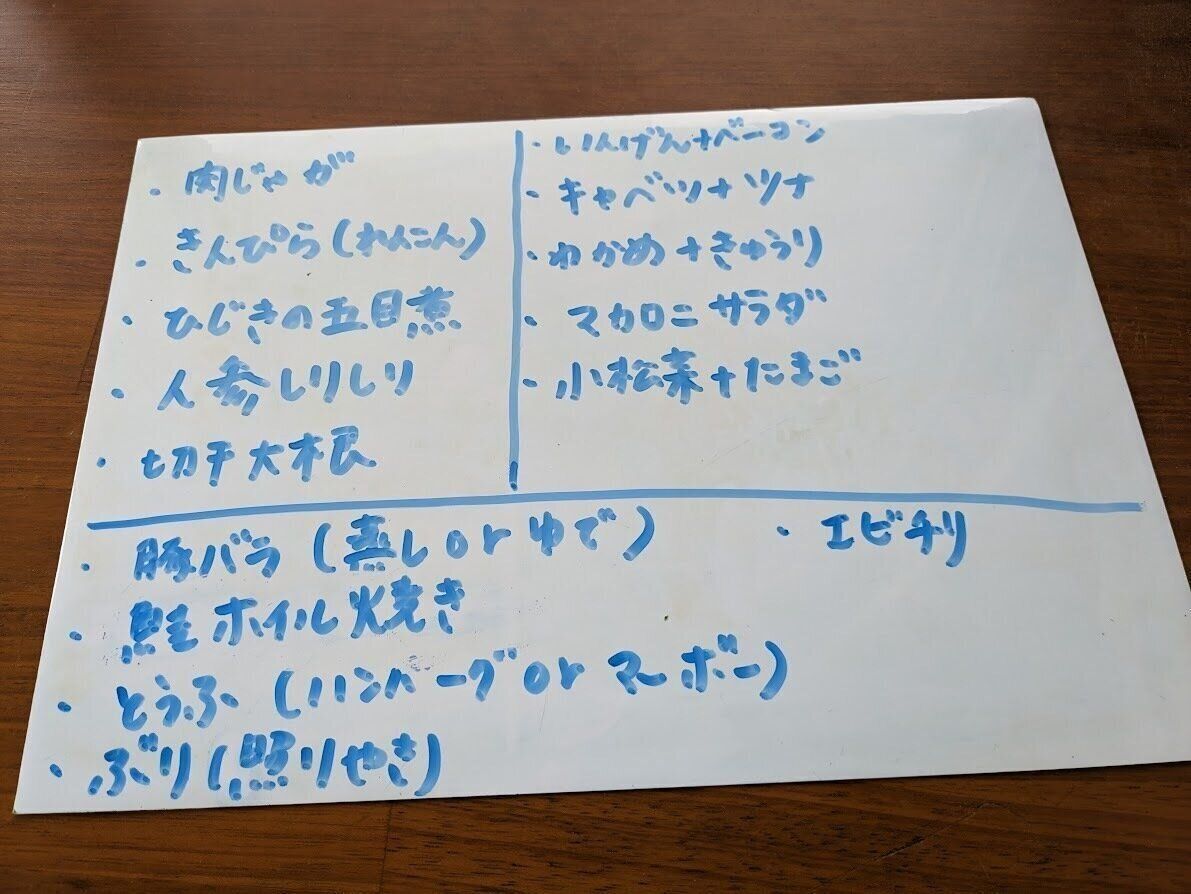 ・肉じゃが
・きんぴら(れんこん)
・ひじきの五目煮
・人参しりしり
・切干大根
・いんげん+ベーコン
・キャベツ+ツナ
・わかめ+きゅうり
・マカロニサラダ
・小松菜+たまご
・豚バラ(蒸しorゆで)
・鮭ホイル焼き
・とうふ(ハンバーグorマーボー)
・ぶり(照りやき)
・エビチリ